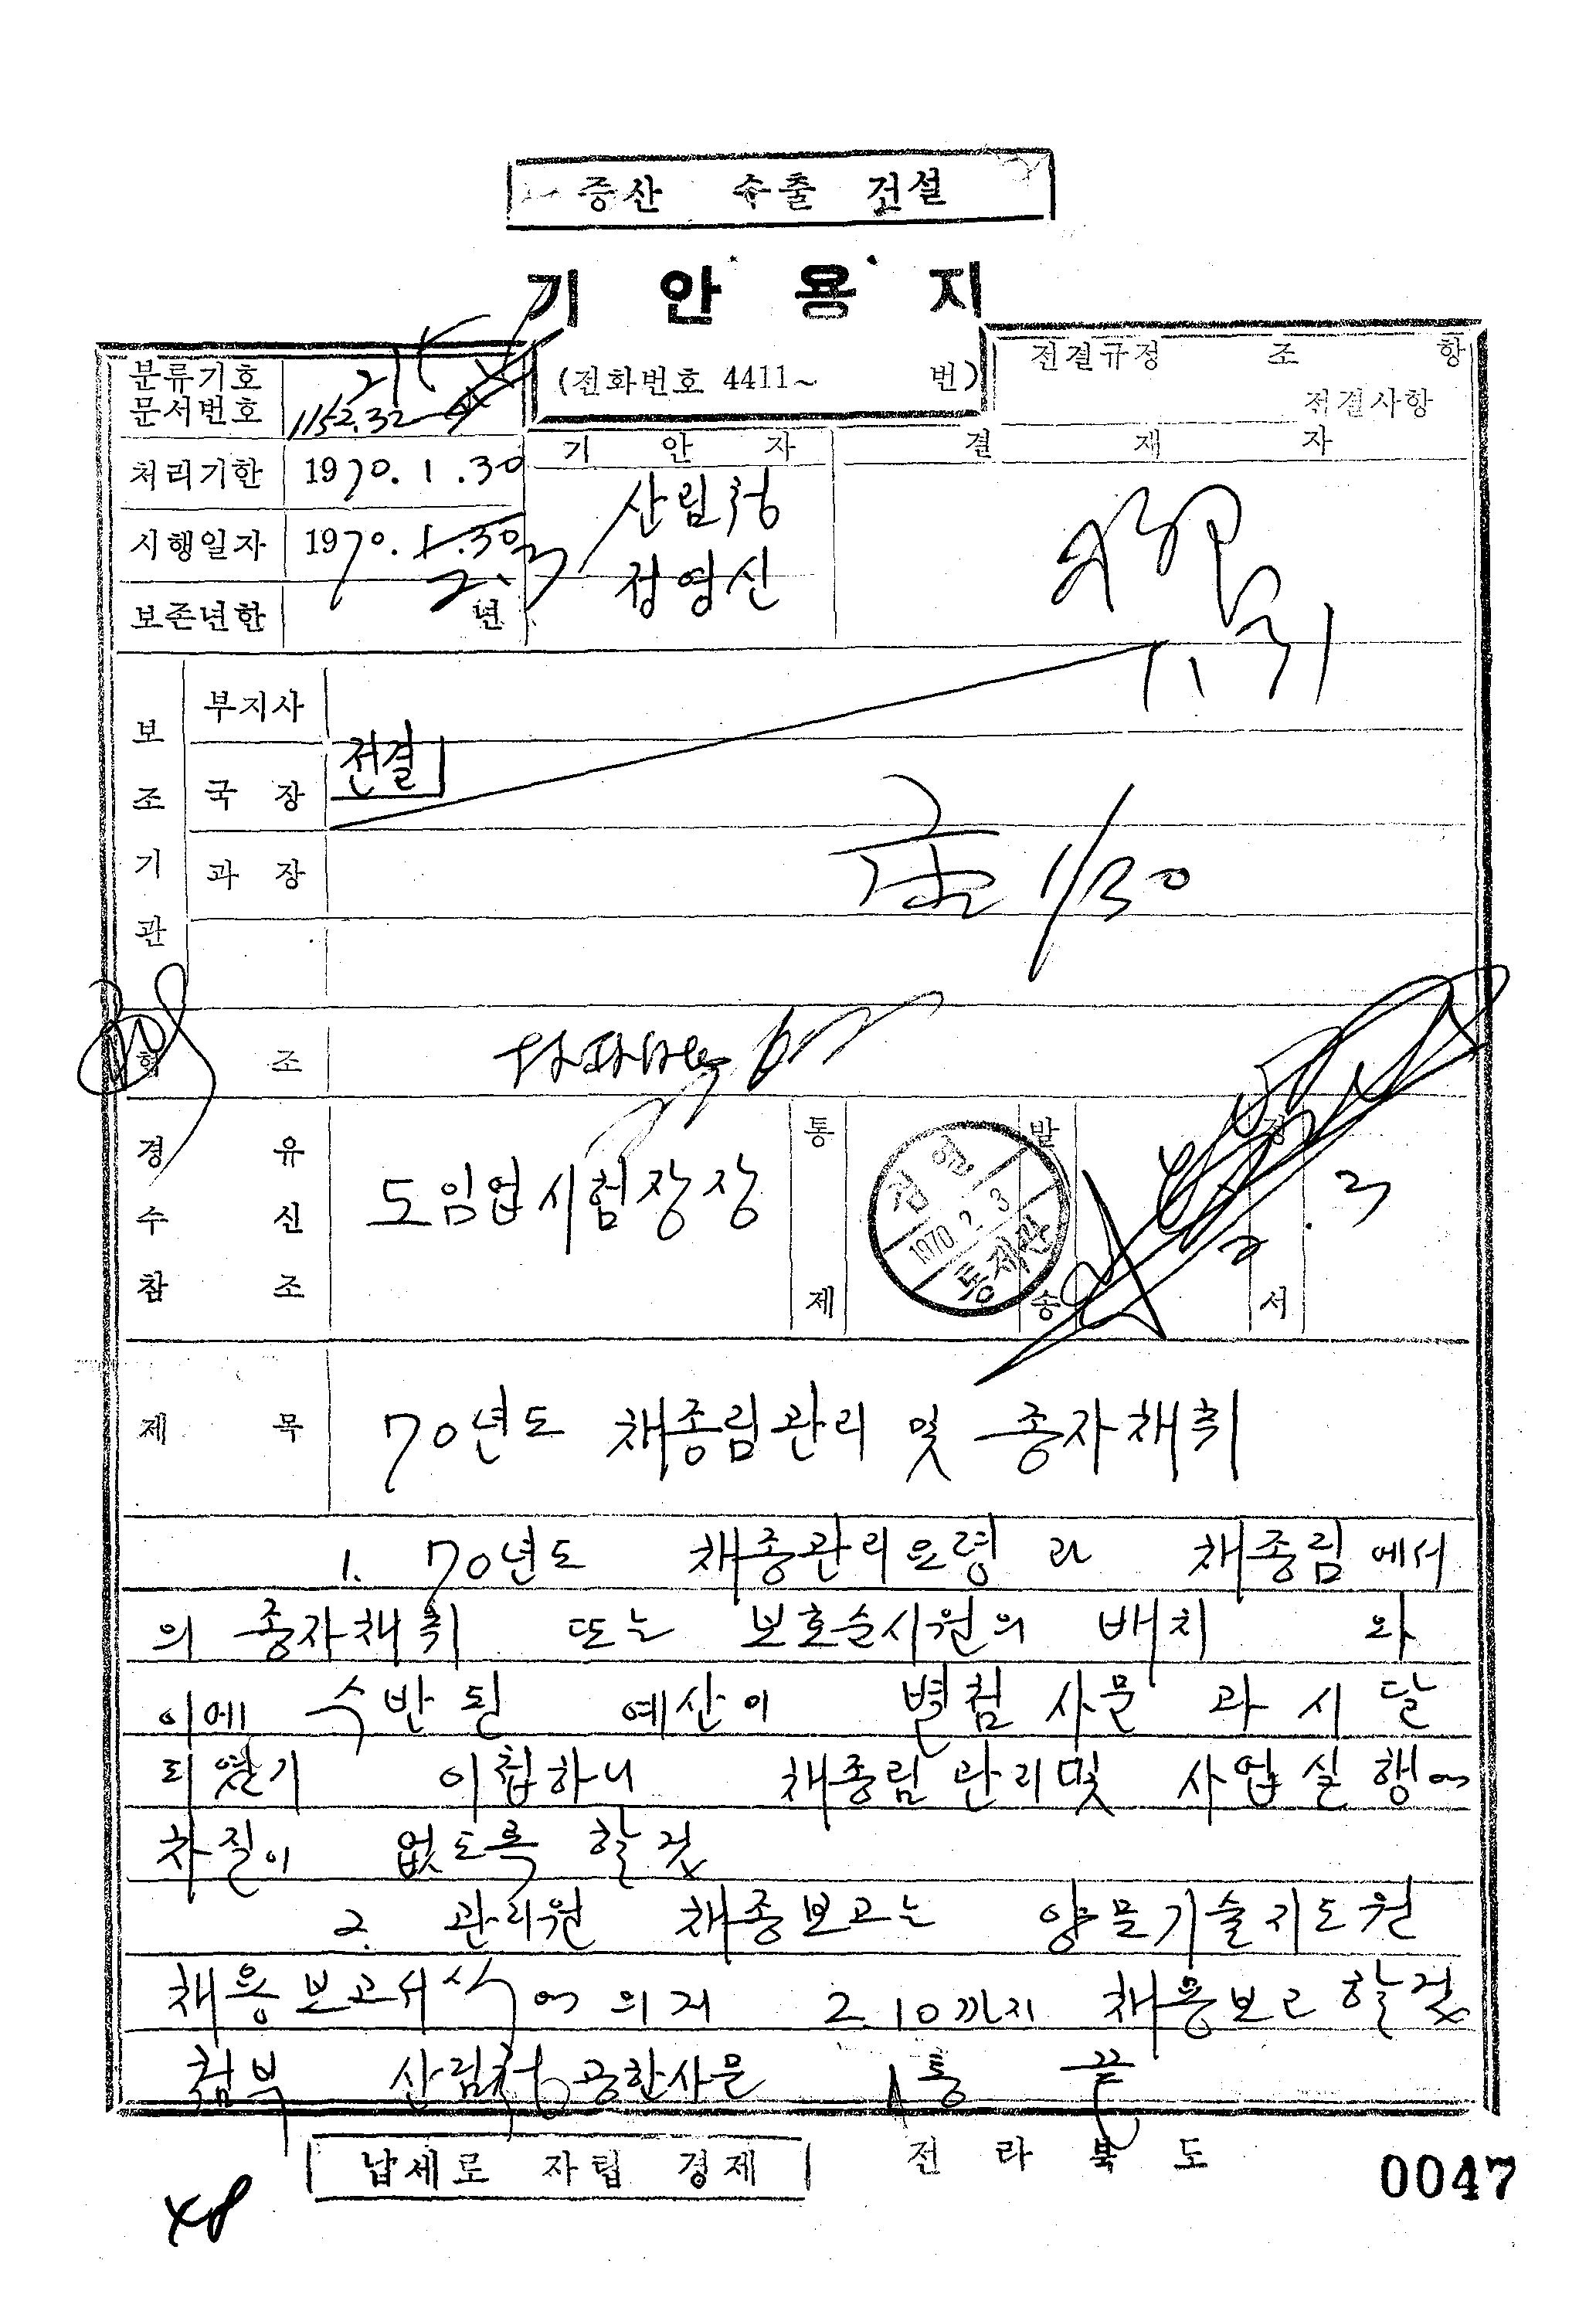 증산 수출 건설
기안용지
분류기호
문서번호
1152.32
(전화번호 4411~ 번)
전결규정 조 항
전결사항
처리기한 1970.1.30
기안자
결재자
시행일자 1970.1.30
2.3
산림청
정영신
보존년한 년
1.31
보조기관
부지사
국장
전결
과장
1/30
협조
경유
수신
참조
도임업시험장장
통제
검열
1970.2.3
통제관
발송
정서
2.3
제목
70년도 채종림관리 및 종자채취
1. 70년도 채종관리요령과 채종림에서
의 종자채취 또는 보호순시원의 배치와
이에 수반된 예산이 별첨 사문과 시달
되였기 이첩하니 채종림관리및 사업실행에
차질이 없도록 할것
2. 관리원 채종보고는 양묘기술지도원
채용보고서식에 의거 2.10까지 채용보고 할것
첨부 산림청공한사문 1통 끝
납세로 자립 경제
전라북도
0047